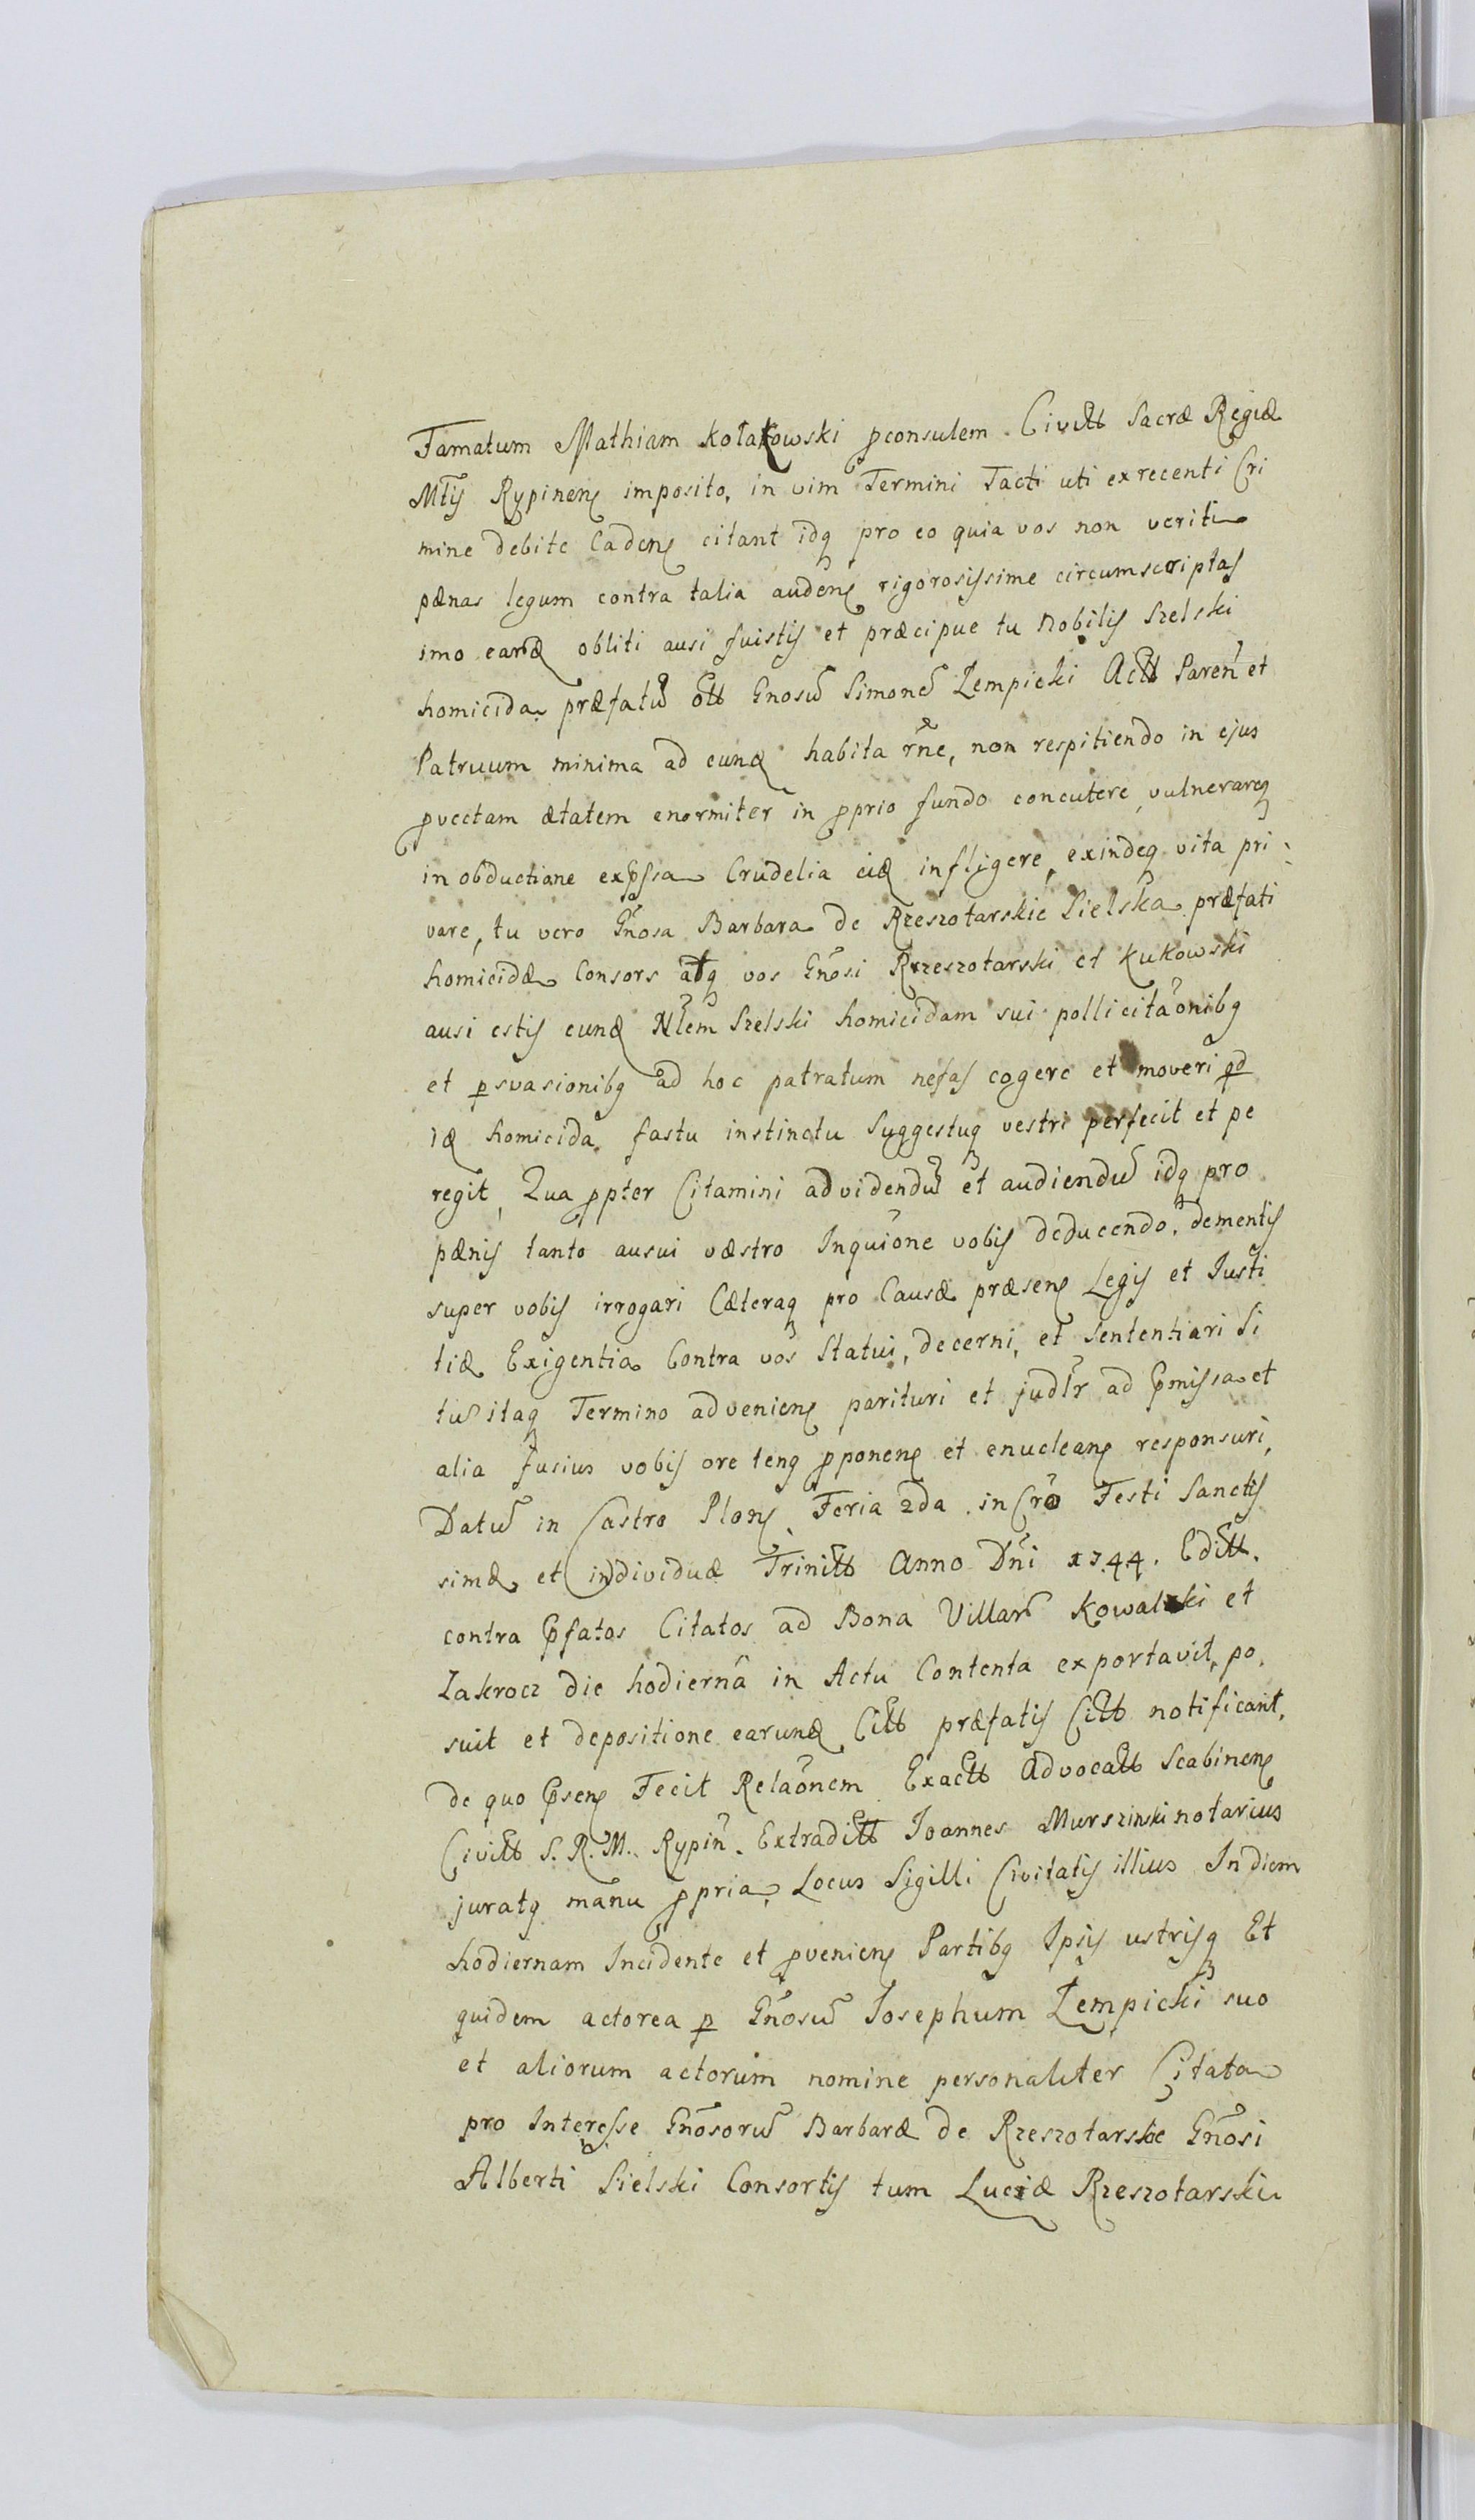 Famatum Mathiam Kołakowski pconsulem Civitt Sacræ Regiæ
Mtis Rypinen imposito, in vim Termini Tacti uti ex recenti Cri
mine debite Caden citant idq pro eo quia vos non veriti
pænas legum contra talia auden rigorosissime circumscriptas
imo earund obliti ausi fuistis et præcipue tu Nobilis Szelski
homicida præfatū olt Gnosū Simonē Łempicki Actt Paren et
Patruum minima ad eund habita rñe, non respitiendo in ejus
pvectam ætatem enormiter in pprio fundo concutere, vulnerareq
in obductione expssa Crudelia eid infligere, exindeq vita pri
vare, tu vero Gñosa Barbara de Rzeszotarskie Sielska præfati
homicidæ Consors atq vos Gnosi Rzeszotarski et Kukowski
ausi estis eund Nlem Szelski homicidam sui pollicitaonibq
et psvasionibq ad hoc patratum nefas cogere et moveri qd
id homicida fastu instinctu Suggestuq vestri perfecit et pe
regit, Qua ppter Citamini ad videndū et audiendū idq pro
pænis tanto ausui væstro Inquiõne vobis deducendo, dementis
super vobis irrogari Cæteraq pro Causæ præsen Legis et Justi
tiæ Exigentia Contra vos Statui, decerni, et Sententiari Si
tis itaq Termino advenien parituri et judlr ad Pmissa et
alia fusius vobis ore tenq pponen et enuclean responsuri,
Datū in Castro Plon Feria 2da in Cro Festi Sanctis
simæ et individuæ Trinitt Anno Dni 1744. Editt.
contra Pfatos Citatos ad Bona Villarū Kowalski et
Zakrocz die hodierna in Actu Contenta exportavit, po,
suit et depositione earund Citt præfatis Citt notificant,
de quo Psen Fecit Relaõnem Exactt Advocatt Scabinen
Civitt S. R. M. Rypin. Extraditt Joannes Murszinski notarius
juratq manu ppria, Locus Sigilli Civitatis illius In diem
hodiernam Incidente et pvenien Partibq Ipsis utrisq Et
quidem actorea p Gñosū Josephum Łempicki suo
et aliorum actorum nomine personaliter Citata
pro Interesse Gñosorū Barbaræ de Rzeszotarskie Gñosi
Alberti Sielski Consortis tum Luciæ Rzeszotarski